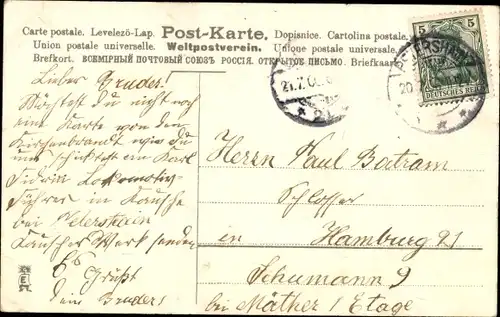 Carte postale. Levelező-Lap. Post-Karte. Dopisnice. Cartolina postale.
Union postale universelle. Weltpostverein. Unione postale universale.
Brefkort. ВСЕМІРНЫЙ ПОЧТОВЫЙ СОЮЗЪ РОССІЯ. ОТКРЫТОЕ ПИСЬМО. Briefkaart.
5 5
DEUTSCHES REICH
PETERSHAIN
20
21.7.
Lieber Bruder!
Möchtest du nicht noch
eine Karte von den
Kirchenbrandt
und, schickst ein Karl
Lokomotiv-
führer in Kausche
bei Petershain
Kauscher Werk senden
Es Grüßt
dein Bruder
Herrn Paul Batram
Schlosser
in Hamburg 21
Schumann 9
bei Mäther 1 Etage